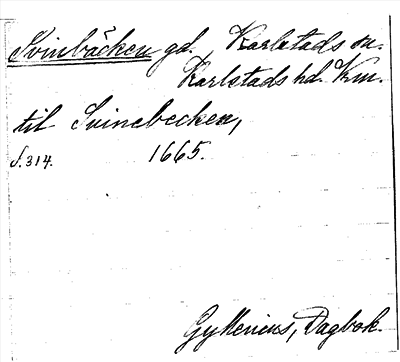 Svinbäcken gd. Karlstads sn.
Karlstads hd. Krm.
til Svinebecken,
S. 314. 1665.
Gyllenius, Dagbok.